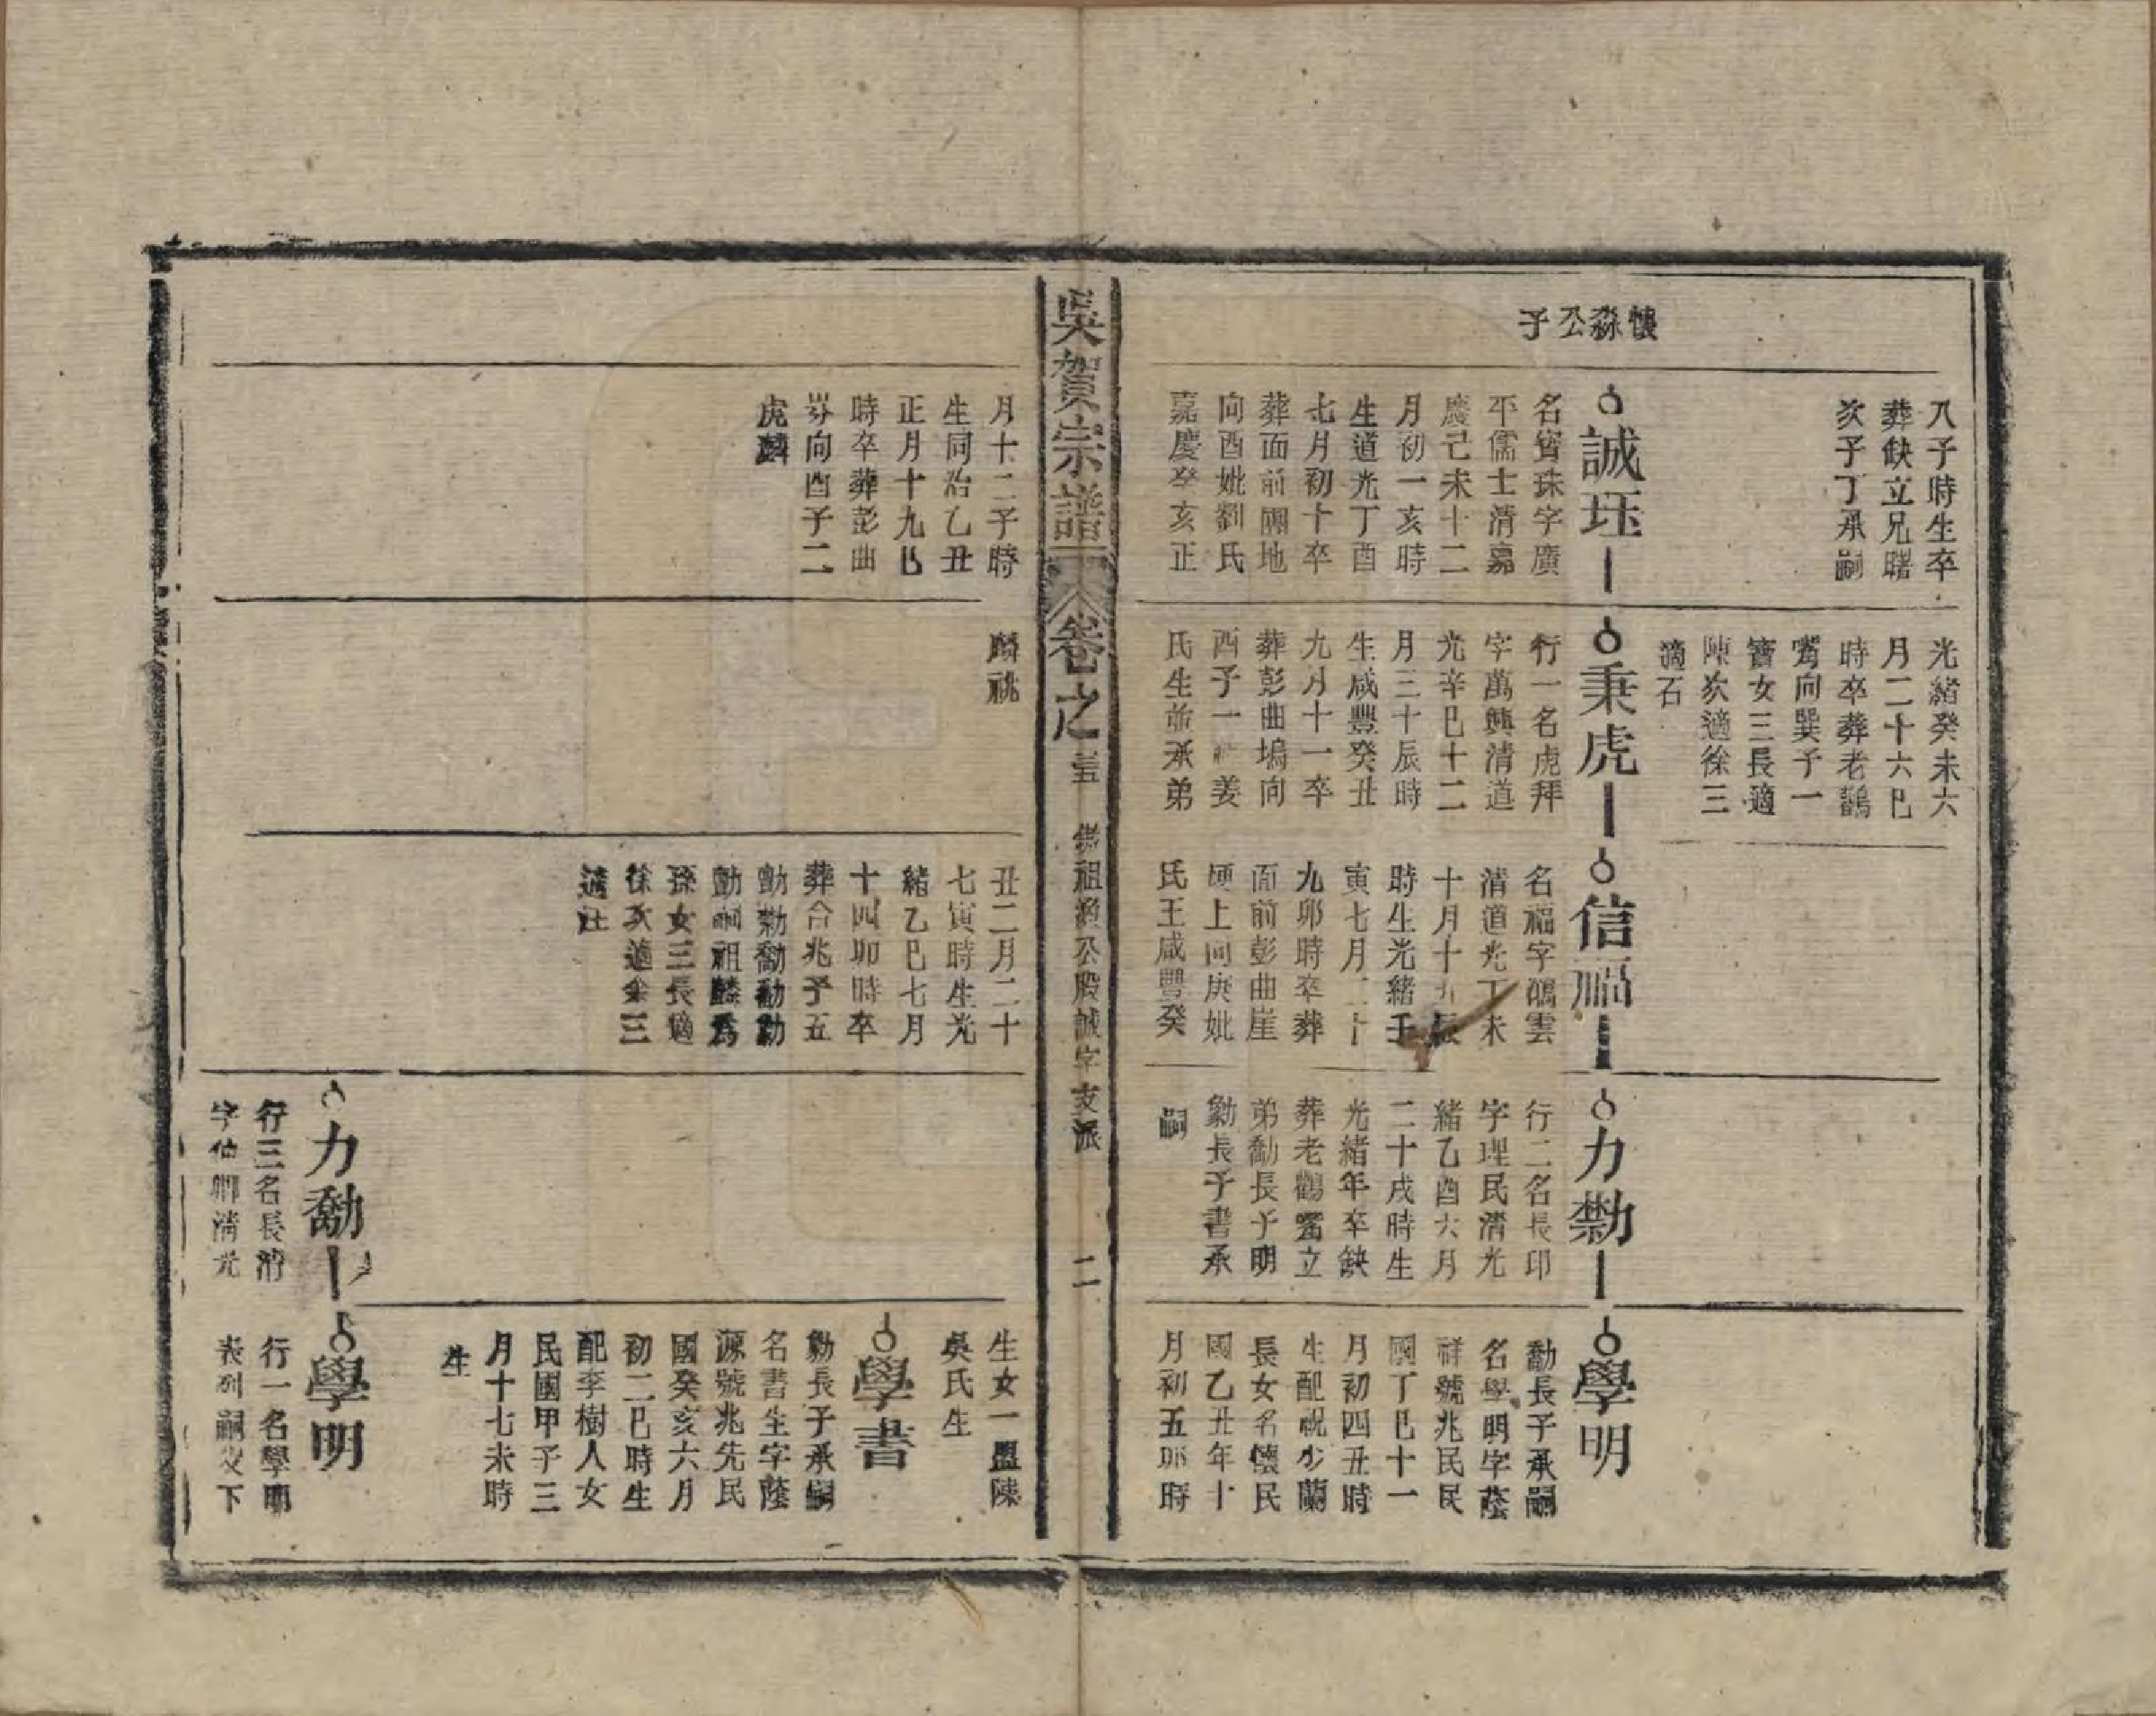 懷淼公子
八子時生卒
葬缺立兄曙
次子丁承嗣
誠珏
名寶珠字廣
平儒士清嘉
慶己未十二
月初一亥時
生道光丁酉
七月初十卒
葬面前團地
向酉妣劉氏
嘉慶癸亥正
光緒癸未六
月二十六巳
時卒葬老鸛
窩向巽子一
簪女三長適
陳次適徐三
適石
秉虎
行一名虎拜
字萬興清道
光辛巳十二
月三十辰時
生咸豐癸丑
九月十一卒
葬彭曲塢向
酉子一福姜
氏生前承弟
信福
名福字鴻雲
清道光丁未
十月十五辰
時生光緒壬
寅七月二十
九卯時卒葬
面前彭曲崖
埂上向庚妣
氏王咸豐癸
力勷
行二名長印
字理民清光
緒乙酉六月
二十戌時生
光緒年卒缺
葬老鸛窩立
弟勫長子明
勦長子書承
嗣
學明
勫長子承嗣
名學明字蔭
祥號兆民民
國丁巳十一
月初四丑時
生配祝少蘭
長女名懷民
國乙丑年十
月初五卯時
吳賀宗譜
卷之三五
漁公股誠字支派
二
月十二子時
生同治乙丑
正月十九巳
時卒葬彭曲
向酉子二
虎麟
麟祧
丑二月二十
七寅時生光
緒乙巳七月
十四卯時卒
葬合兆子五
嗣祖麟為
孫女三長適
徐次適余三
適汪
生女一盟陳
吳氏生
學書
勦長子承嗣
名書生字蔭
源號兆先民
國癸亥六月
初二巳時生
配李樹人女
民國甲子三
月十七未時
生
力勫
行三名長清
字仙卿清光
學明
行一名學明
表列嗣次下